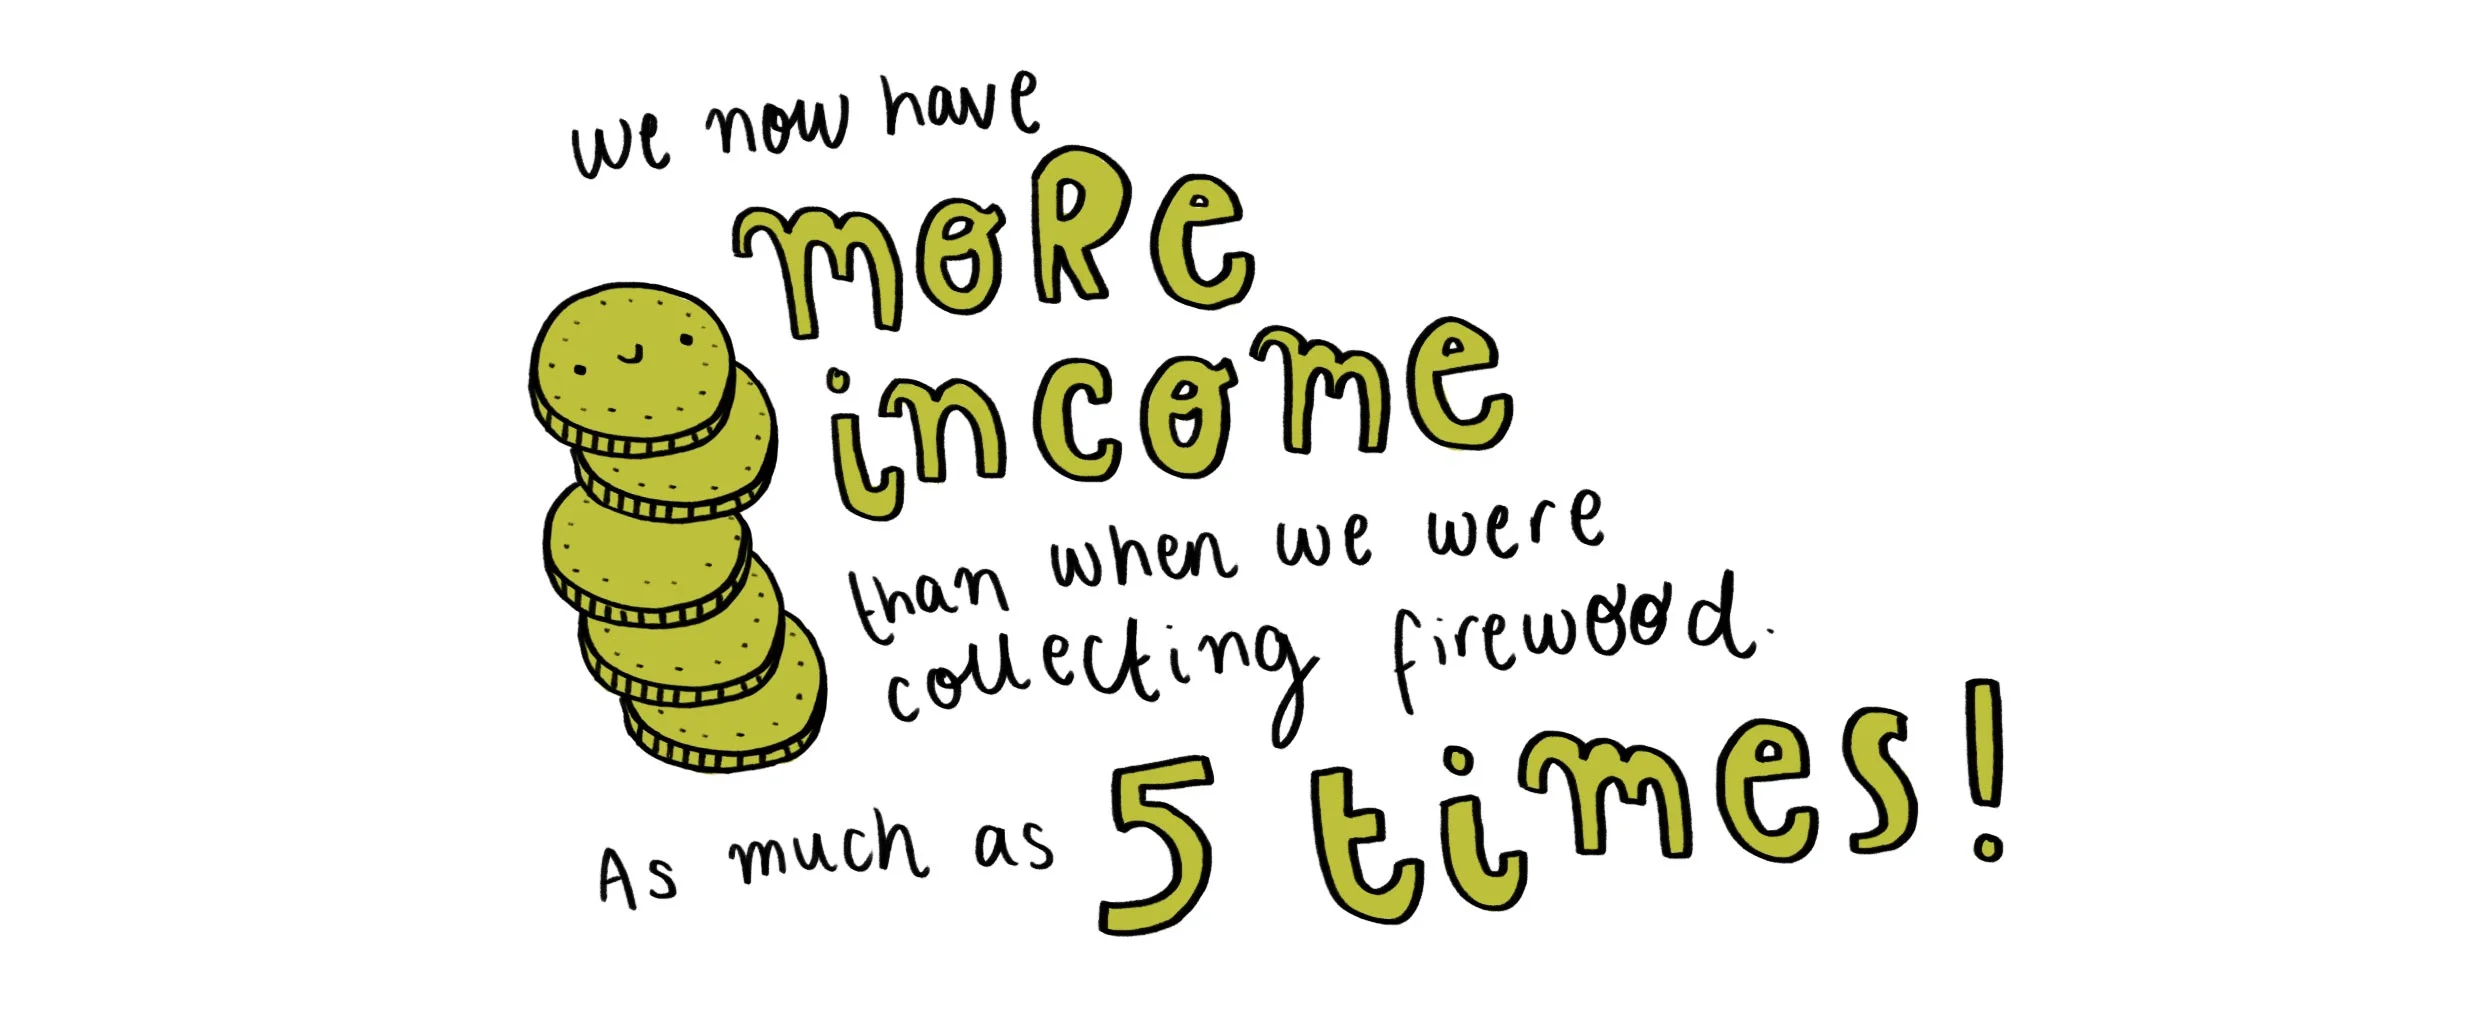 we now have
moRe
income
than when we were
collecting firewood.
As much as 5 times!